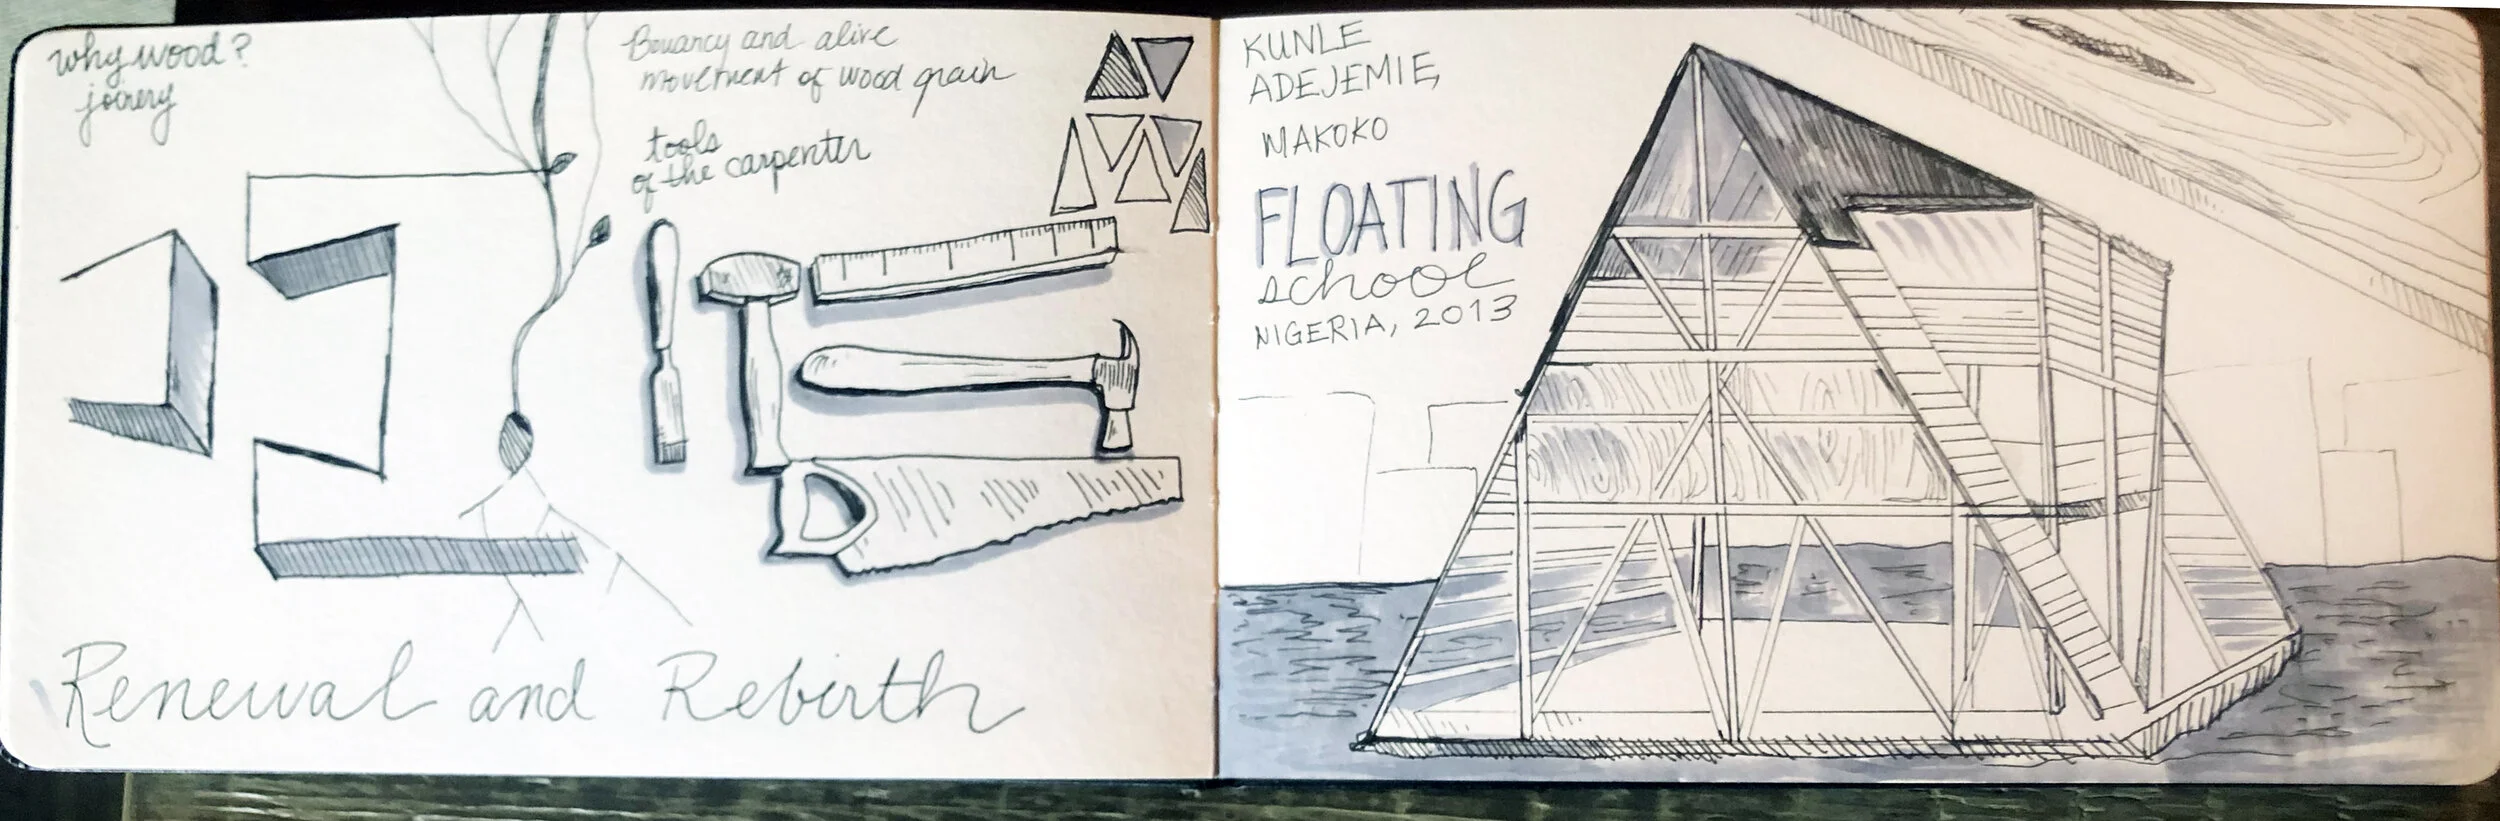 why wood?
joinery
Bouancy and alive
movement of wood grain
tools
of the carpenter
Renewal and Rebirth
KUNLE
ADEJEMIE,
MAKOKO
FLOATING
school
NIGERIA, 2013